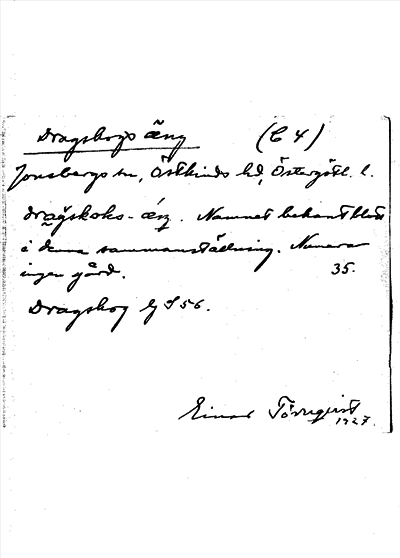 Dragsborgs äng (C 4)
Jonsbergs sn, Östkinds hd, Östergötl. l.
drag̃skoks-ä́ŋ. Namnet bekant blott
i denna sammanställning. Numera
ingen gård. 35.
Dragskog Gj S 56.
Einar Törnqvist
1927.